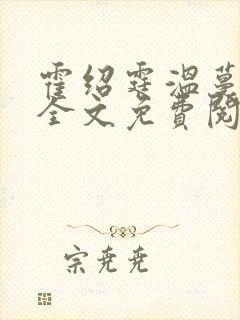 霍绍霆温蔓
全文免费阅
宗尧尧